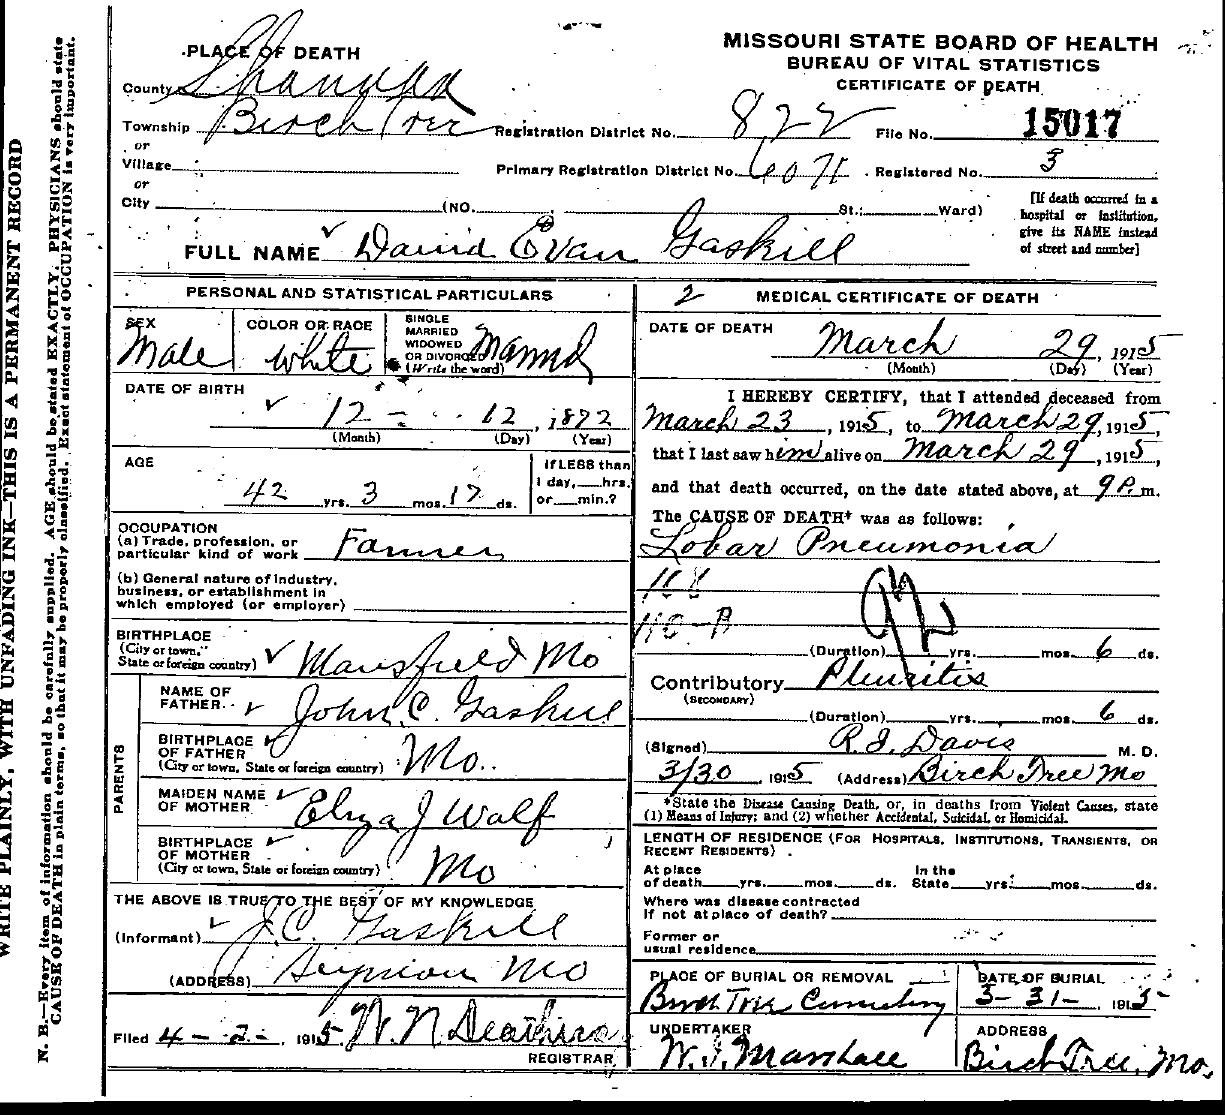 WRITE PLAINLY, WITH UNFADING INK—THIS IS A PERMANENT RECORD
N. B.—Every item of information should be carefully supplied. AGE should be stated EXACTLY. PHYSICIANS should state
CAUSE OF DEATH in plain terms, so that it may be properly classified. Exact statement of OCCUPATION is very important.
MISSOURI STATE BOARD OF HEALTH
BUREAU OF VITAL STATISTICS
CERTIFICATE OF DEATH
PLACE OF DEATH
County Shannon
Township Birch Tree
or
Village
or
City (NO. St.; Ward)
Registration District No. 822 File No. 15017
Primary Registration District No. 6071 Registered No. 3
[If death occurred in a
hospital or institution,
give its NAME instead
of street and number]
FULL NAME David Evan Gaskill
PERSONAL AND STATISTICAL PARTICULARS
SEX
Male
COLOR OR RACE
White
SINGLE
MARRIED
WIDOWED
OR DIVORCED
(Write the word)
Married
DATE OF BIRTH
12 - 12, 1872
(Month) (Day) (Year)
AGE
42 yrs. 3 mos. 17 ds.
If LESS than
1 day, hrs.
or min.?
OCCUPATION
(a) Trade, profession, or
particular kind of work Farmer
(b) General nature of industry,
business, or establishment in
which employed (or employer)
BIRTHPLACE
(City or town,
State or foreign country) Mansfield Mo
PARENTS
NAME OF
FATHER John C. Gaskill
BIRTHPLACE
OF FATHER
(City or town, State or foreign country) Mo.
MAIDEN NAME
OF MOTHER Eliza J Wolf
BIRTHPLACE
OF MOTHER
(City or town, State or foreign country) Mo
THE ABOVE IS TRUE TO THE BEST OF MY KNOWLEDGE
(Informant) J.C. Gaskill
(ADDRESS) Mo
Filed 4-2-, 1915 W. N.
REGISTRAR
2 MEDICAL CERTIFICATE OF DEATH
DATE OF DEATH
March 29, 1915
(Month) (Day) (Year)
I HEREBY CERTIFY, that I attended deceased from
March 23, 1915, to March 29, 1915,
that I last saw him alive on March 29, 1915,
and that death occurred, on the date stated above, at 9 P.m.
The CAUSE OF DEATH* was as follows:
Lobar Pneumonia
(Duration) yrs. mos. 6 ds.
Contributory Pleuritis
(SECONDARY)
(Duration) yrs. mos. 6 ds.
(Signed) R.I. Davis M. D.
3/30 1915 (Address) Birch Tree Mo
*State the Disease Causing Death, or, in deaths from Violent Causes, state
(1) Means of Injury; and (2) whether Accidental, Suicidal, or Homicidal.
LENGTH OF RESIDENCE (FOR HOSPITALS, INSTITUTIONS, TRANSIENTS, OR
RECENT RESIDENTS).
At place
of death yrs. mos. ds.
In the
State yrs. mos. ds.
Where was disease contracted
If not at place of death?
Former or
usual residence
PLACE OF BURIAL OR REMOVAL
Birch Tree Cemetery
DATE OF BURIAL
3-31-, 1915
UNDERTAKER
W. J. Marshall
ADDRESS
Birch Tree, Mo,